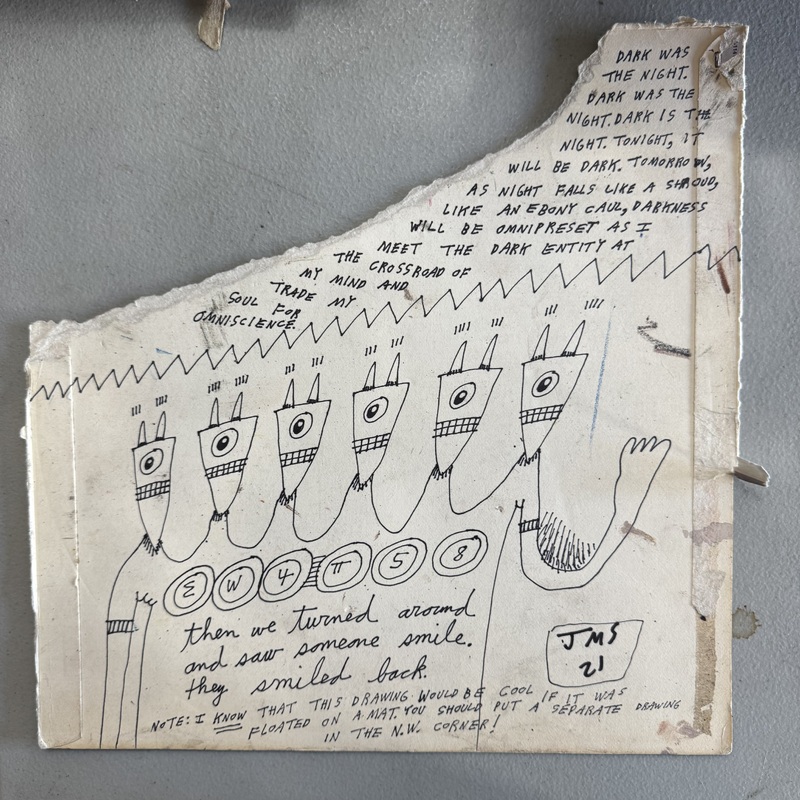 DARK WAS
THE NIGHT.
DARK WAS THE
NIGHT. DARK IS THE
NIGHT. TONIGHT, IT
WILL BE DARK. TOMORROW,
AS NIGHT FALLS LIKE A SHROUD,
LIKE AN EBONY CAUL, DARKNESS
WILL BE OMNIPRESET AS I
THE MEET THE DARK ENTITY AT
MY CROSSROAD OF
MIND AND
TRADE MY
SOUL FOR
OMNISCIENCE.
Σ W 4 π 5 8
then we turned around
and saw someone smile.
they smiled back.
JMS
21
NOTE: I KNOW THAT THIS DRAWING WOULD BE COOL IF IT WAS
FLOATED ON A MAT. YOU SHOULD PUT A SEPARATE DRAWING
IN THE N.W. CORNER!